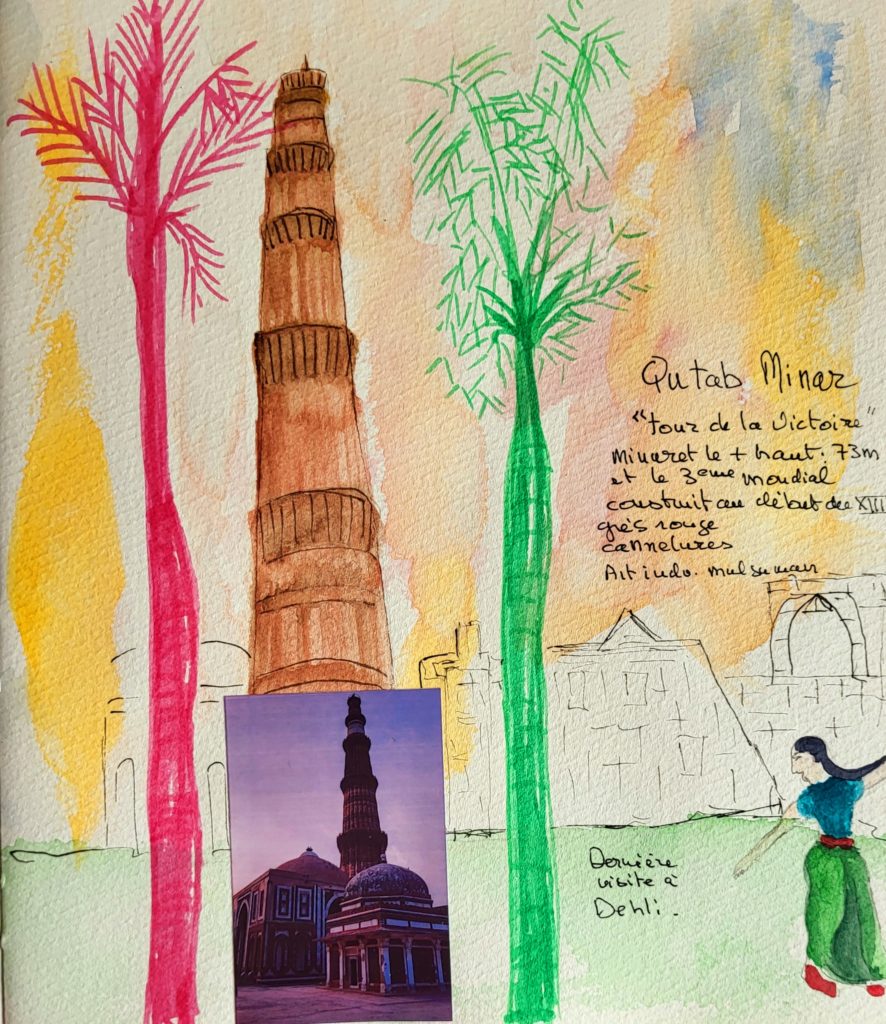 Qutab Minar
"tour de la Victoire"
minaret le + haut : 73m
et le 3eme mondial
construit au début du XIII
grès rouge
cannelures
Art indo. mulsuman
Dernière
visite à
Dehli.